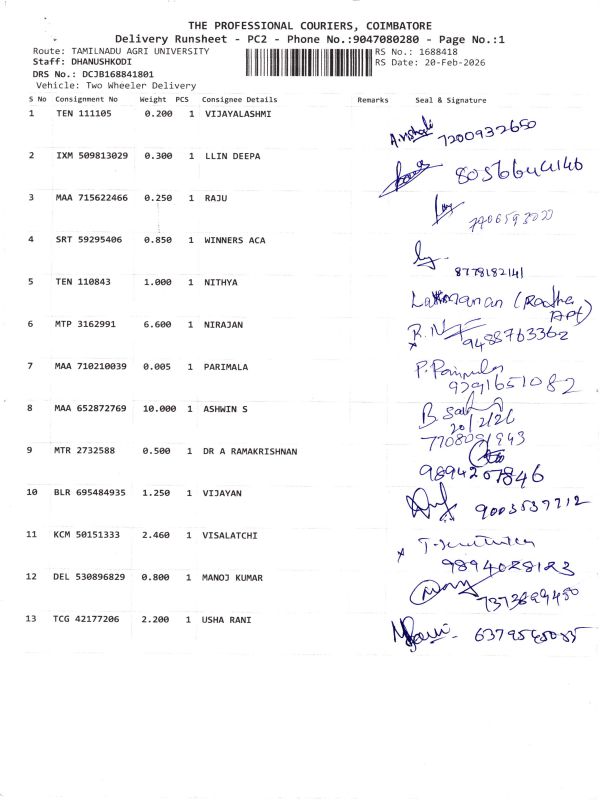 THE PROFESSIONAL COURIERS, COIMBATORE
Delivery Runsheet - PC2 - Phone No.:9047080280 - Page No.:1
Route: TAMILNADU AGRI UNIVERSITY RS No.: 1688418
Staff: DHANUSHKODI RS Date: 20-Feb-2026
DRS No.: DCJB168841801
Vehicle: Two Wheeler Delivery
S No Consignment No Weight PCS Consignee Details Remarks Seal & Signature
1 TEN 111105 0.200 1 VIJAYALASHMI
7200932650
2 IXM 509813029 0.300 1 LLIN DEEPA
8056644146
3 MAA 715622466 0.250 1 RAJU
4 SRT 59295406 0.850 1 WINNERS ACA
8778182141
5 TEN 110843 1.000 1 NITHYA
(Radha
Apt)
6 MTP 3162991 6.600 1 NIRAJAN
9488763362
7 MAA 710210039 0.005 1 PARIMALA
9291651082
8 MAA 652872769 10.000 1 ASHWIN S
20/2/26
9 MTR 2732588 0.500 1 DR A RAMAKRISHNAN
9894207846
10 BLR 695484935 1.250 1 VIJAYAN
9003537712
11 KCM 50151333 2.460 1 VISALATCHI
9894028123
12 DEL 530896829 0.800 1 MANOJ KUMAR
13 TCG 42177206 2.200 1 USHA RANI